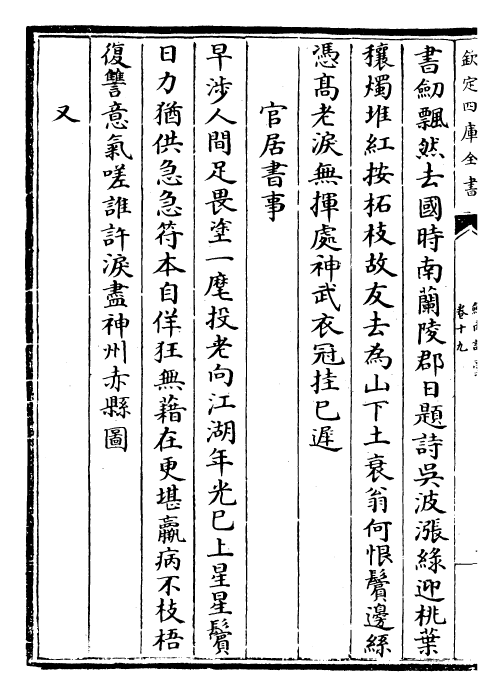 欽定四庫全書
卷十九
書劒飄然去國時南蘭陵郡日題詩吳波漲綠迎桃葉
穰燭堆紅按柘枝故友去為山下土衰翁何恨鬢邊絲
憑髙老淚無揮處神武衣冠挂已遲
官居書事
早涉人間足畏塗一麾投老向江湖年光已上星星鬢
日力猶供急急符本自佯狂無藉在更堪羸病不枝梧
復讐意氣嗟誰許淚盡神州赤縣圖
又